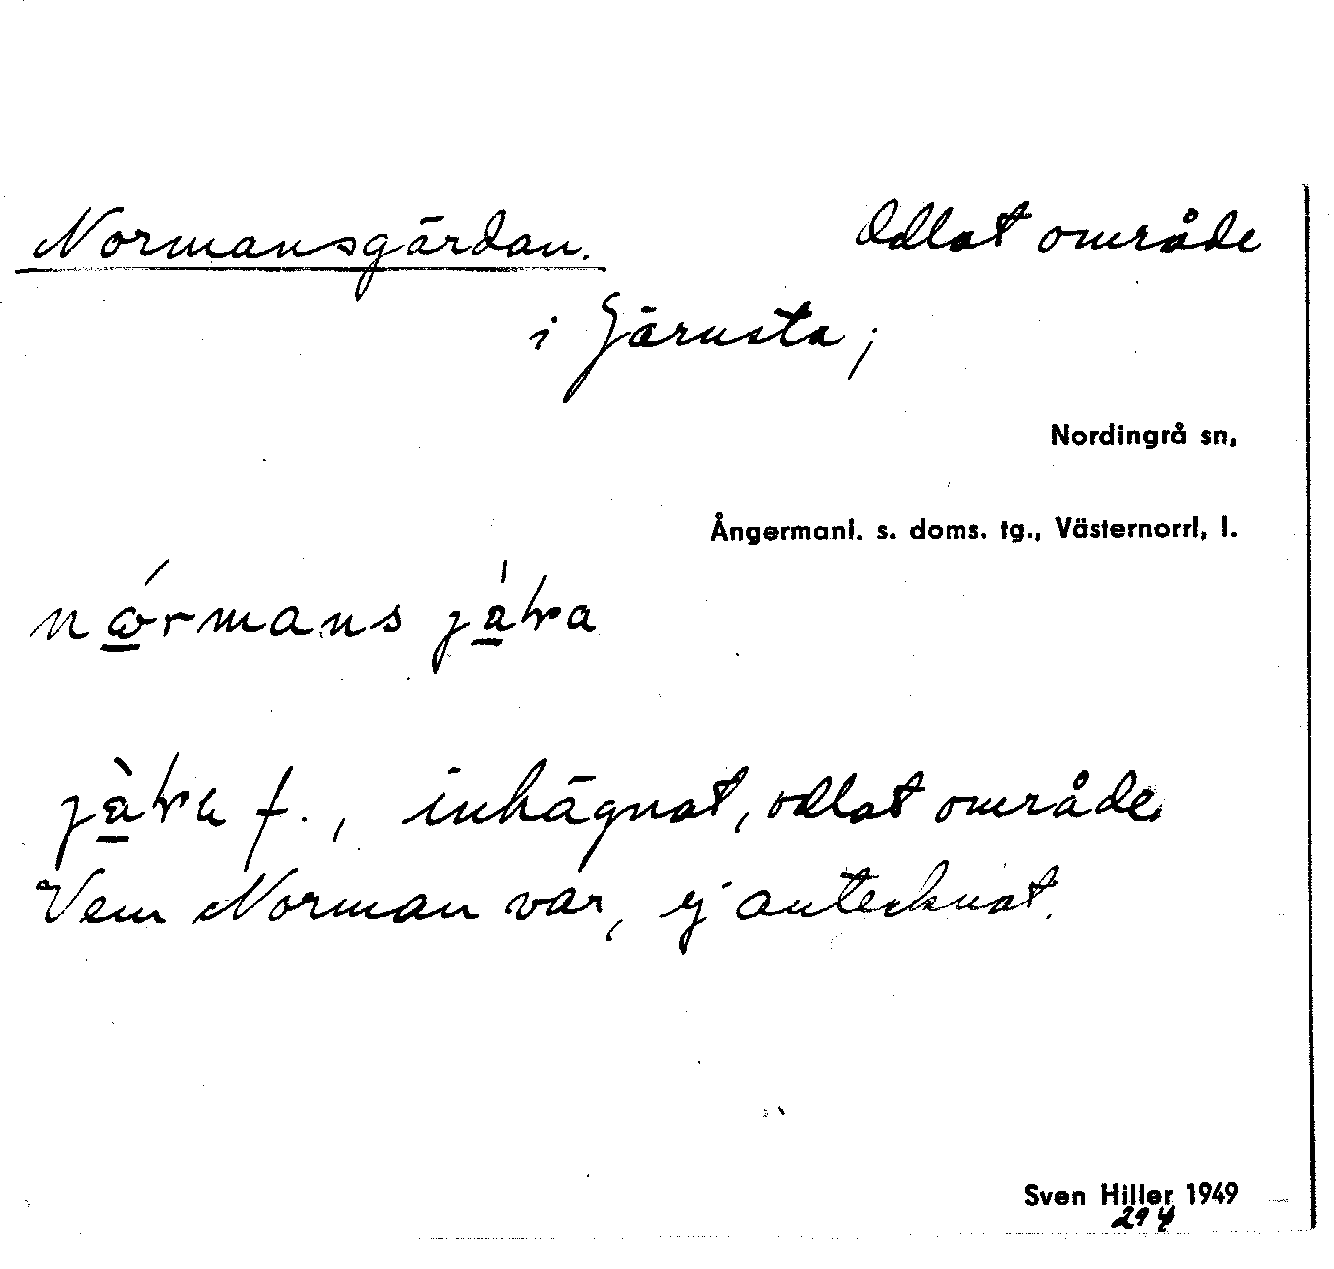 Normansgärdan. Odlat område
i Järnsta;
Nordingrå sn,
Ångermanl. s. doms. tg., Västernorrl. l.
f., inhägnat, odlat område
Vem Norman var, ej antecknat.
Sven Hiller 1949
294